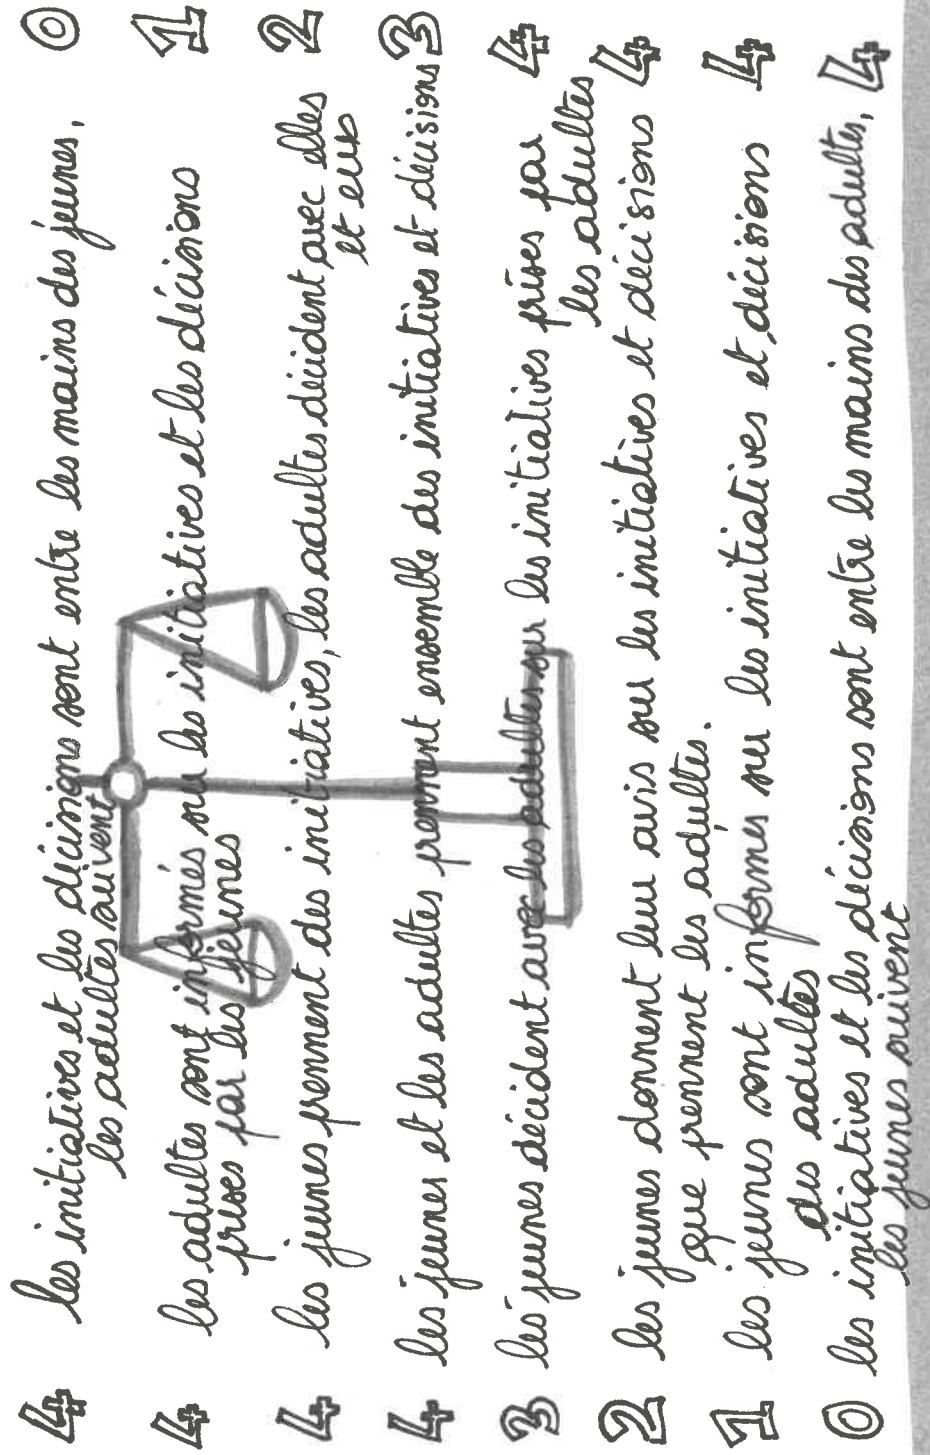 4 les initiatives et les décisions sont entre les mains des jeunes, 0
les adultes suivent
4 les adultes sont informés sur les initiatives et les décisions 1
prises par les jeunes
4 les jeunes prennent des initiatives, les adultes décident avec elles 2
et eux
4 les jeunes et les adultes prennent ensemble des initiatives et décisions 3
3 les jeunes décident avec les adultes sur les initiatives prises par 4
les adultes
2 les jeunes donnent leur avis sur les initiatives et décisions 4
que prennent les adultes.
1 les jeunes sont informés sur les initiatives et décisions 4
des adultes
0 les initiatives et les décisions sont entre les mains des adultes, 4
les jeunes suivent